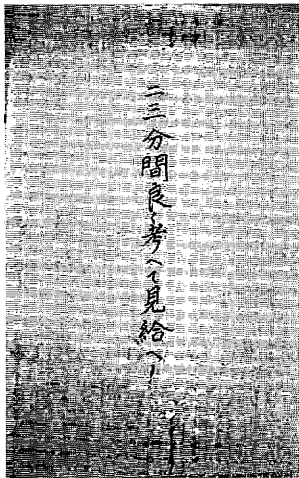 二三分間良く考へて見給へ！